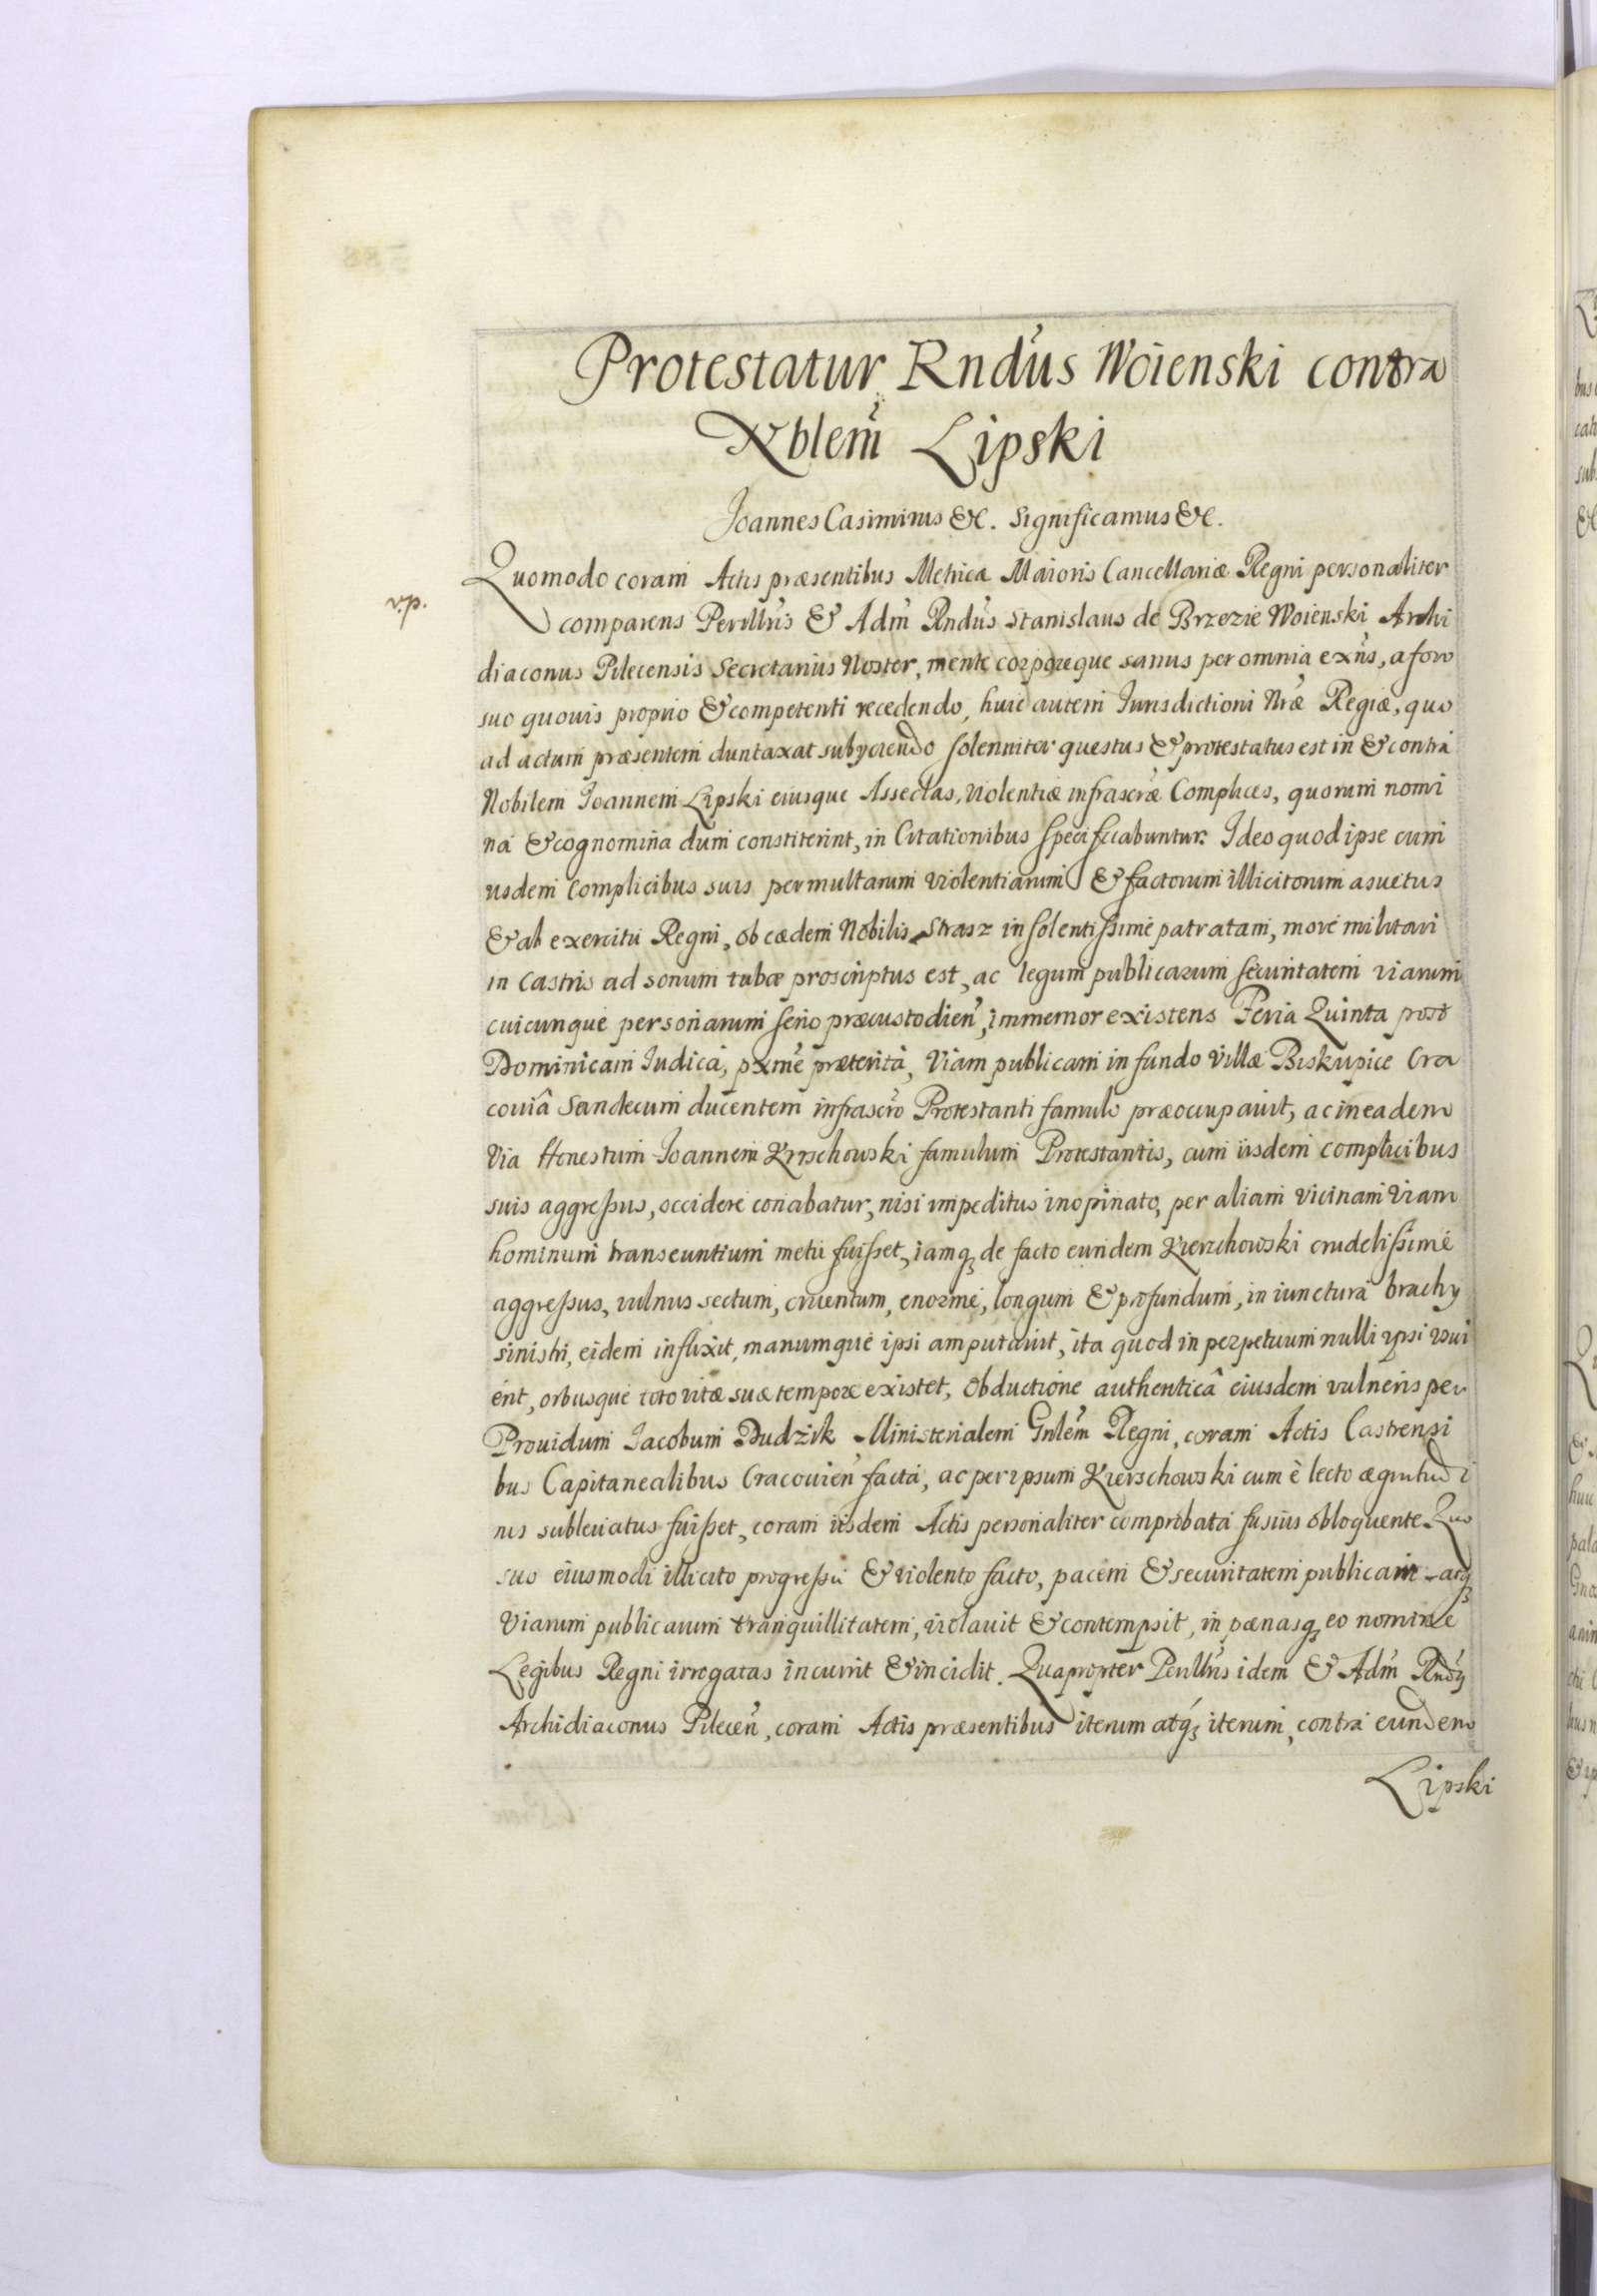 Protestatur Rndus Woienski contra
Nblem Lipski
Joannes Casimirus &c. Significamus &c.
Quomodo coram Actis præsentibus Metricæ Maioris Cancellariæ Regni personaliter
v.p.
comparens Perillris & Adm Rndus Stanislaus de Brzezie Woienski Archi
diaconus Pilecensis Secretarius Noster, mente corporeque sanus per omnia exns, a foro
suo quouis proprio & competenti recedendo, huic autem Iurisdictioni Nræ Regiæ, quo
ad actum præsentem duntaxat subyciendo solenniter questus & protestatus est in & contra
Nobilem Joannem Lipski eiusque Asseclas, violentiæ infrascræ Complices, quorum nomi
na & cognomina dum constiterint, in Citationibus specificabuntur. Ideo quod ipse cum
iisdem Complicibus suis permultarum violentiarum & factorum illicitorum asuetus
& ab exercitu Regni, ob cædem Nobilis Strasz insolentissime patratam, more militari
in Castris ad sonum tubæ proscriptus est, ac legum publicarum securitatem viarum
cuicunque personarum serio præcustodien, immemor existens Feria Quinta post
Dominicam Iudica, pxme præterita, Viam publicam in fundo Villæ Biskupice Cra
couiâ Sandecum ducentem infrascro Protestanti famulo præoccupauit, ac in eadem
Via Honestum Joannem Krschowski famulum Protestantis, cum iisdem complicibus
suis aggressus, occidere conabatur, nisi impeditus inopinato, per aliam vicinam viam
hominum transeuntium metu fuisset, iamq de facto eundem Kierschowski crudelissime
aggressus, vulnus sectum, cruentum, enorme, longum & profundum, in iunctura brachy
sinistri, eidem inflixit, manumque ipsi amputauit, ita quod in perpetuum nulli ipsi vsui
erit, orbusque toto vitæ suæ tempore existet, Obductione authenticâ eiusdem vulneris per
Prouidum Iacobum Dudzik Ministerialem Gnlem Regni, coram Actis Castrensi
bus Capitanealibus Cracouien facta, ac per ipsum Kierschowski cum è lecto ægritudi
nis subleuatus fuisset, coram iisdem Actis personaliter comprobata fusius obloquente Quo
suo eiusmodi illicito progressu & violento facto, pacem & securitatem publicam atq
Viarum publicarum tranquillitatem, violauit & contempsit, in pænasq eo nomine
Legibus Regni irrogatas incurrit & incidit. Quapropter Perillris idem & Adm Rndus
Archidiaconus Pilecen, coram Actis præsentibus iterum atq iterum, contra eundem
Lipski